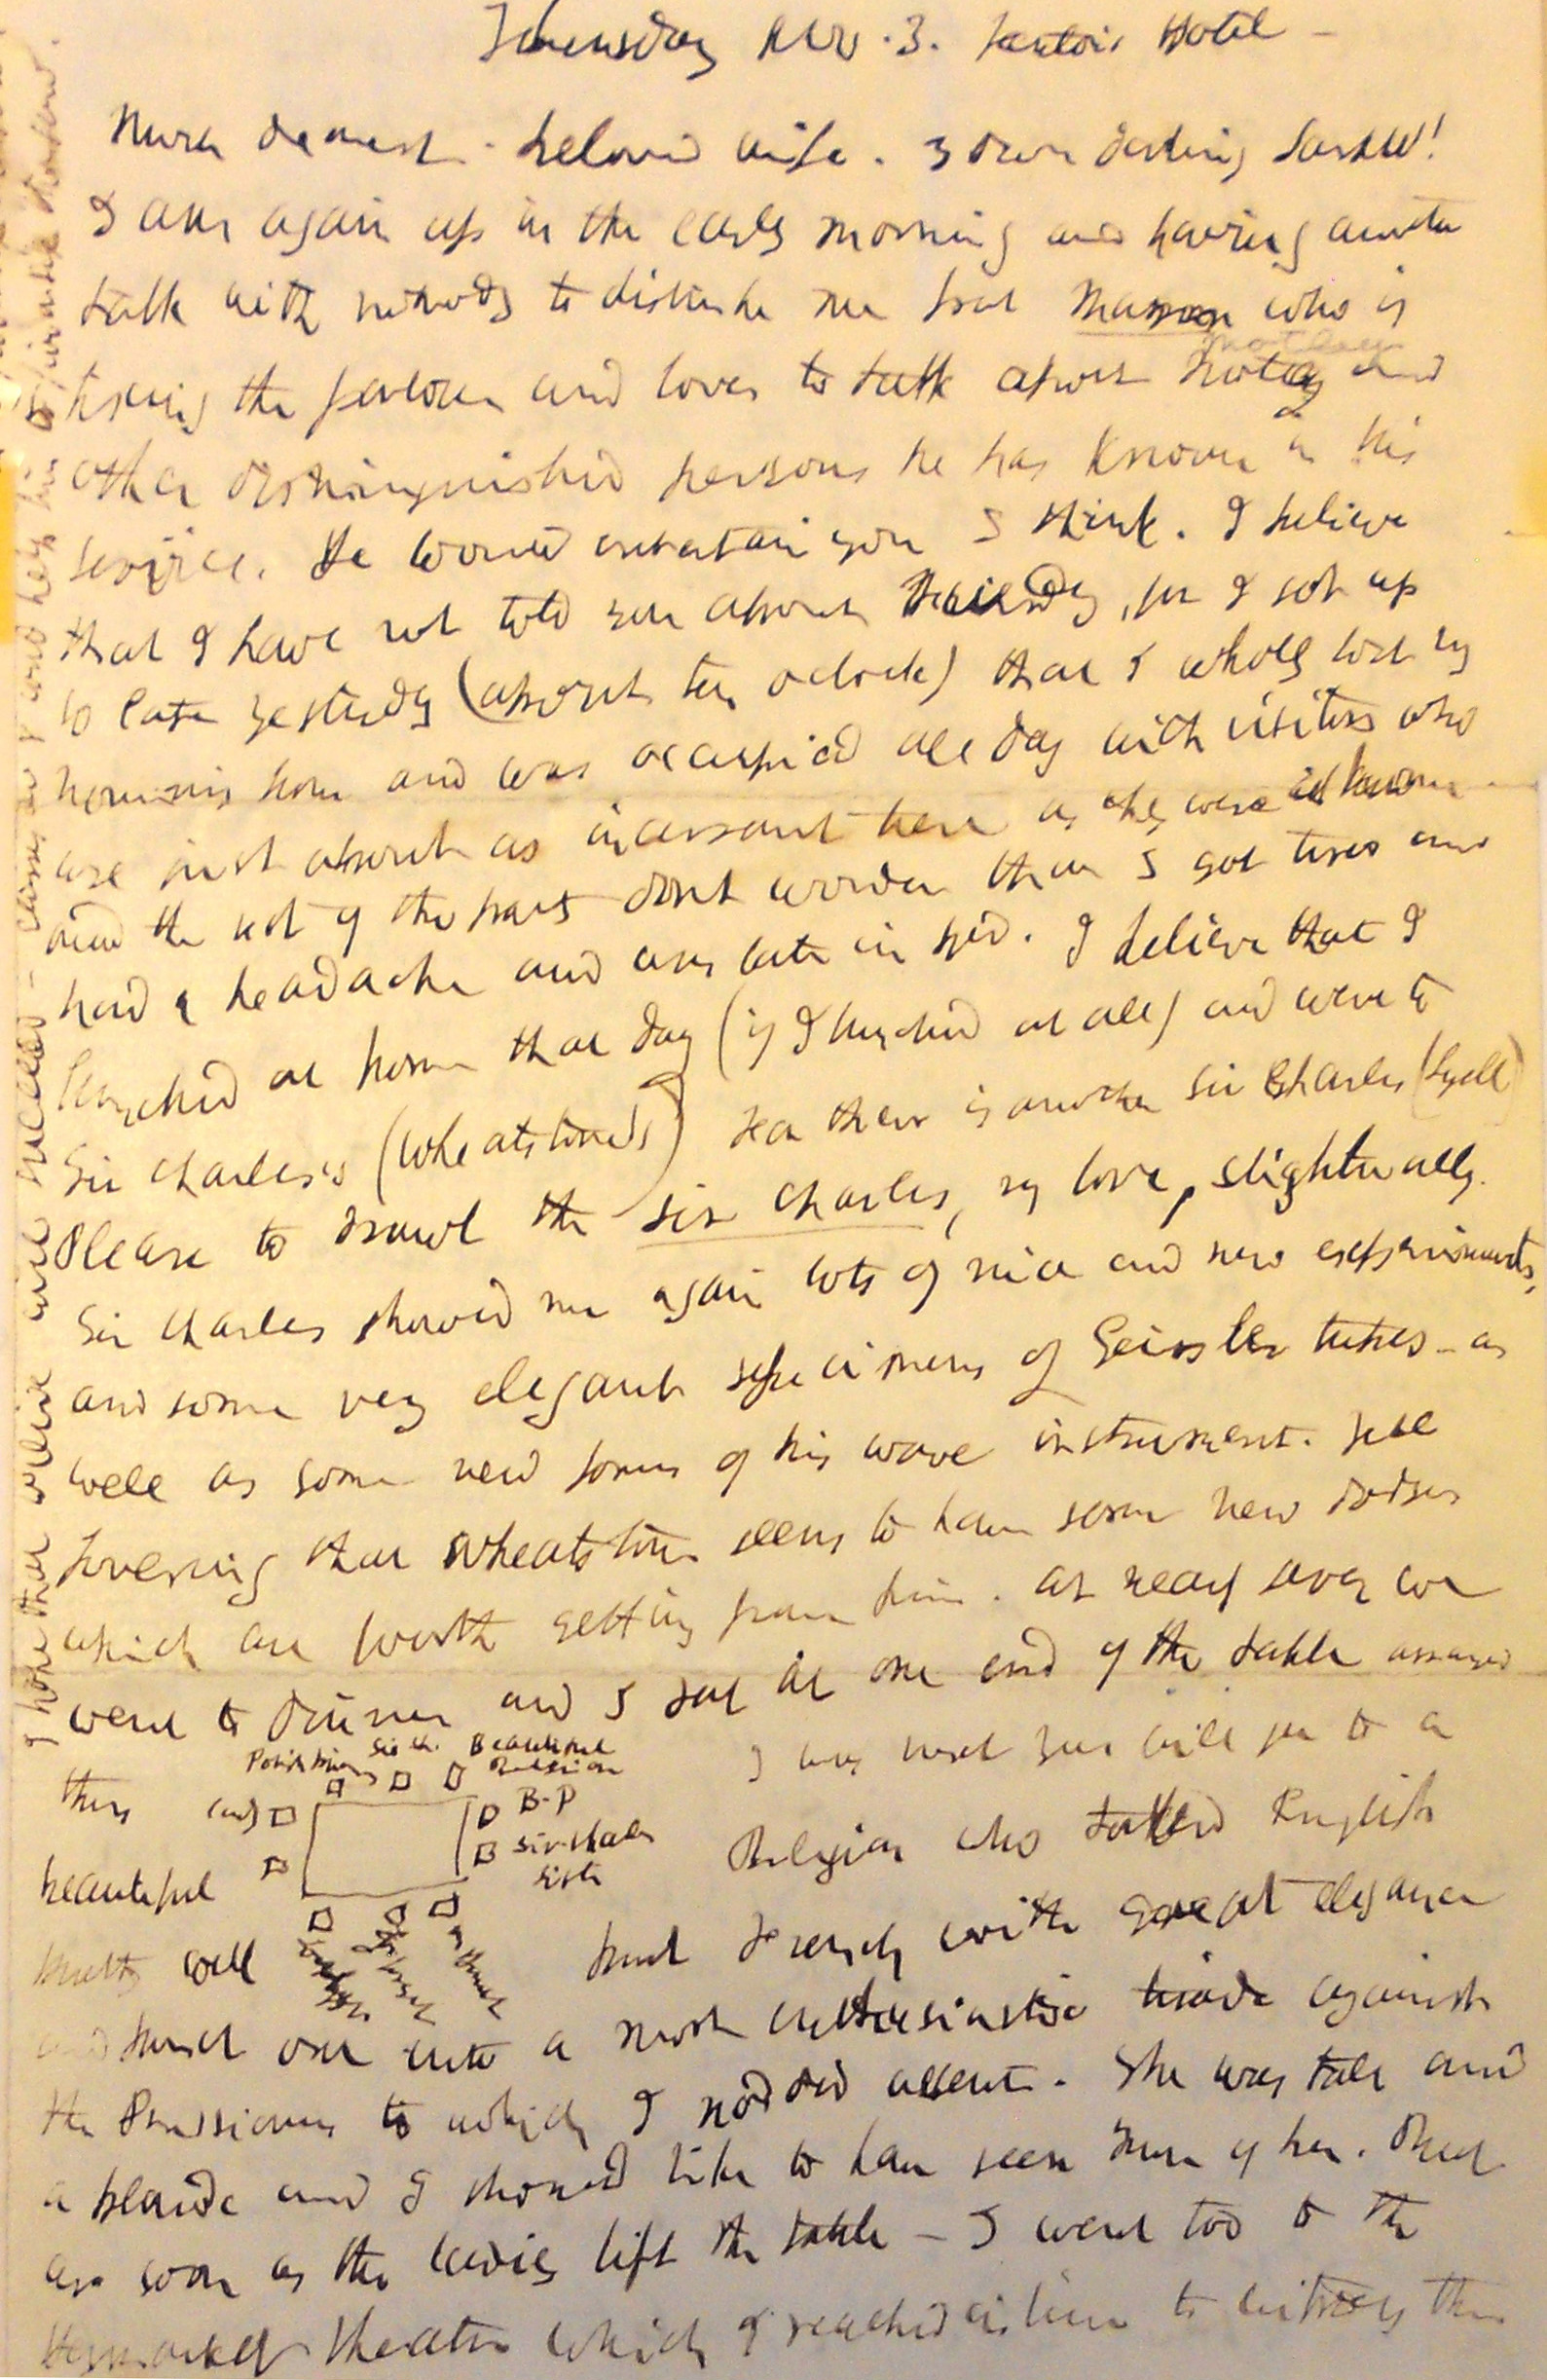 Thursday Nov. 3. Fenton's Hotel -
dearest - beloved wife. own darling
I am again up in the early morning and having another
talk with nobody to disturb me but Mason who is
fixing the parlour and loves to talk about Motley and
other distinguished persons he has known in his
service. He would entertain you I think. I believe
that I have not told you about , for I got up
so late yesterday (about ten o'clock) that I wholly lost my
morning hour and was occupied all day with visitors who
are just about as incessant here as they were at home
and the rest of the party dont wonder that I got tired and
had a headache and was late in bed. I believe that I
lunched at home that day (if I lunched at all) and went to
Sir Charles's (Wheatstone's) For there is another Sir Charles (Lyell)
Please to the Sir Charles, my love, slightually.
Sir Charles showed me again lots of nice and new experiments,
and some very elegant specimens of Geissler tubes - as
well as some new forms of his wave instrument. Tell
Lovering that Wheatstone seems to have some new dodges
which are worth getting from him. At near seven we
went to dinner and I sat at one end of the table arranged
thus
Sir Ch. Beautiful
Belgian
B-P
Sir Charles
Sister
I was next you will see to a
beautiful Belgian who talked English
pretty well but French with great elegance
and burst out into a most enthusiastic tirade against
the Prussians to which I nodded assent. She was tall and
a blonde and I should like to have seen more of her. But
as soon as the ladies left the table - I went too to the
Haymarket Theatre which I reached in time to witness the
I hope that will succeed